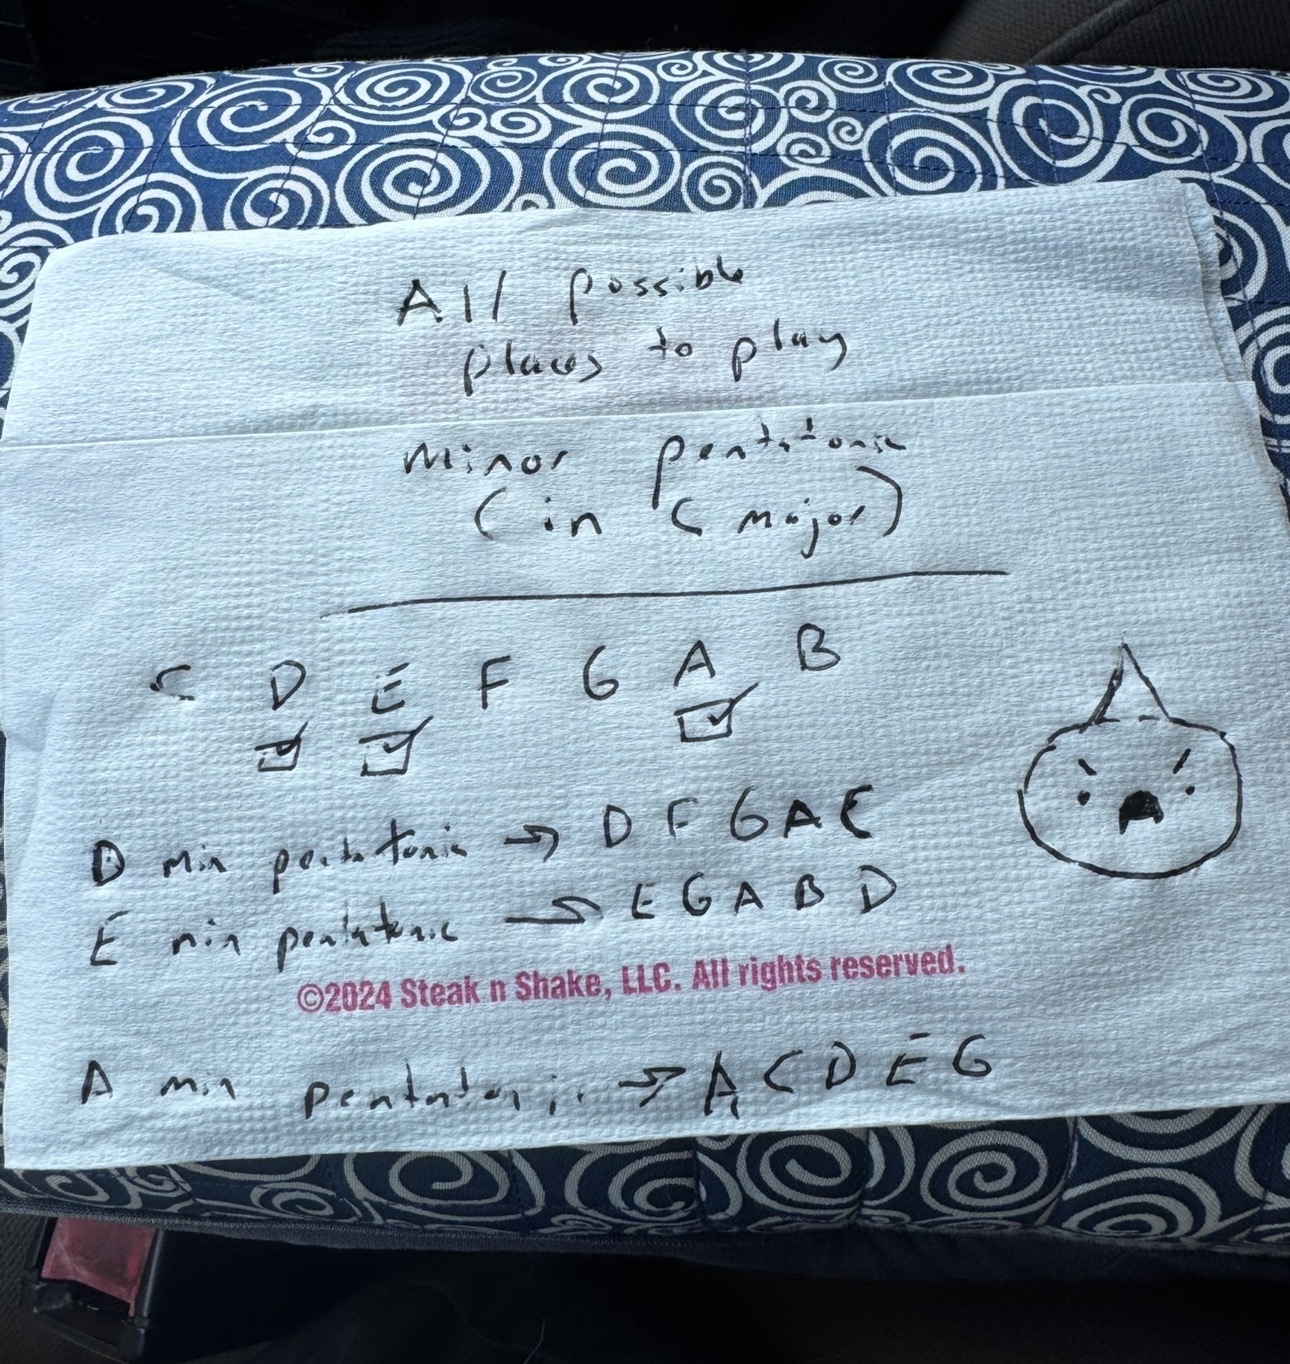 All possible
places to play
Minor pentatonic
(in C major)
C D E F G A B
D min pentatonic → D F G A C
E min pentatonic → E G A B D
©2024 Steak n Shake, LLC. All rights reserved.
A min pentatonic → A C D E G